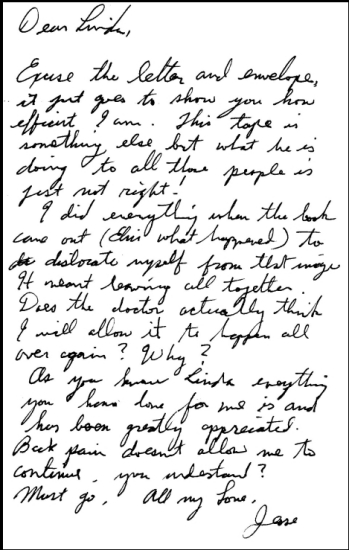 Dear Linda,
Excuse the letter and envelope,
it just goes to show you how
efficient I am. This tape is
something else but what he is
doing to all those people is
just not right!
I did everything when the book
came out (Elvis what happened) to
dislocate myself from that image
It meant leaving all together.
Does the doctor actually think
I will allow it to happen all
over again? Why?
As you know Linda everything
you have done for me is and
has been greatly appreciated.
Back pain doesn't allow me to
continue, you understand?
Must go, All my Love,
Jesse